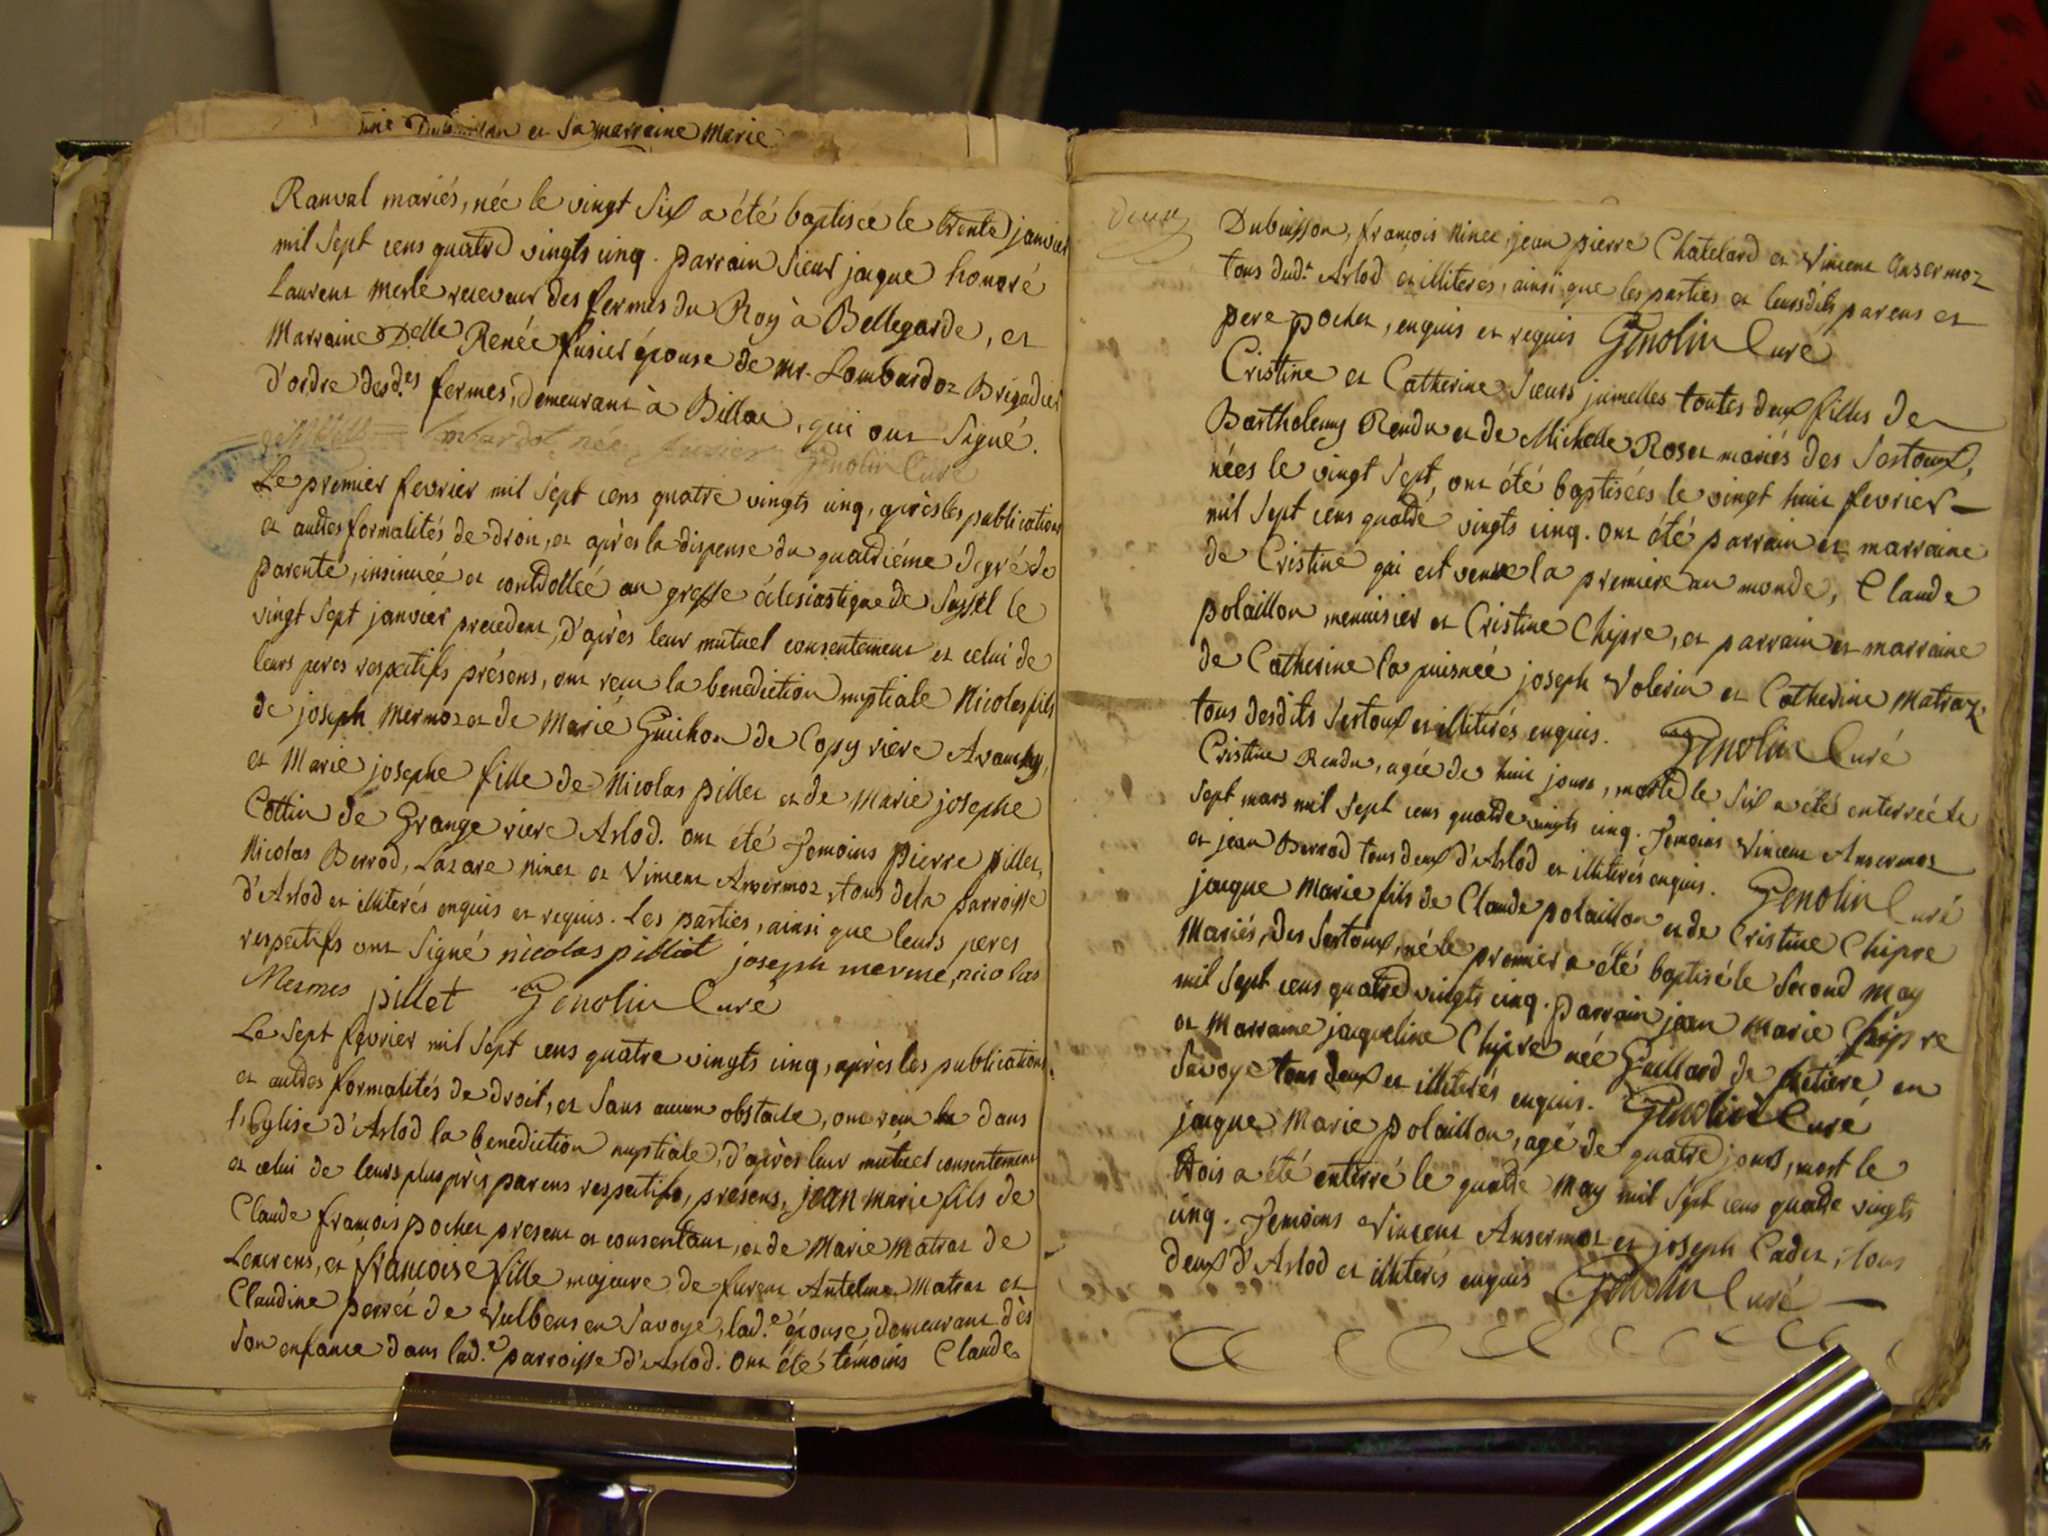 et Sa marraine Marie
Ranval mariés, née le vingt Six a été baptisée le trente janvier
mil Sept cens quatre vingts cinq. parrain Sieur jaque honoré
Laurent Merle receveur des fermes du Roy à Bellegarde, et
Marraine Delle Renée fusier épouse de mr. Lombardoz Brigadier
d'ordre desd.es fermes, demeurant à Billac, qui ont Signé.
née fusier Genolin Curé
Le premier fevrier mil Sept cens quatre vingts cinq, après les publications
et autres formalités de droit, et après la dispense du quatriéme degré de
parenté, insinuée et controllée au greffe éclesiastique de Seyssel le
vingt Sept janvier precedent, d'après leur mutuel consentement et celui de
leurs peres respectifs présens, ont reçu la benediction nuptiale Nicolas fils
de joseph Mermoz et de Marie Guichon de Copy riere
et Marie josephe fille de Nicolas pillet et de Marie josephe
Cottin de Grange riere Arlod. ont été Temoins pierre pillet,
Nicolas Berrod, Lazare ninet et Vincent Ansermoz, tous dela parroisse
d'Arlod et illiterés enquis et requis. Les parties, ainsi que leurs peres
respectifs ont Signé nicolas pilliet joseph merme, nicolas
Mermes pillet Genolin Curé
Le Sept fevrier mil Sept cens quatre vingts cinq, après les publications
et autres formalités de droit, et Sans aucun obstacle, ont reçu dans
l'Eglise d'Arlod la benediction nuptiale, d'après leur mutuel consentement
et celui de leurs plus près parens respectifs, présens, jean marie fils de
Claude françois pochet present et consentant, et de Marie Matraz de
Lencrens, et françoise fille majeure de furent Antelme Matraz et
Claudine perret de Vulbens en Savoye, lad.e épouse, demeurant dès
Son enfance dans lad.e parroisse d'Arlod. Ont été témoins Claude
deux
Dubuisson, françois ninet, jean pierre Chatelard et Vincent Ansermoz
tous dud.t Arlod et illiterés, ainsi que les parties et leursdits parens et
pere pochet, enquis et requis Genolin Curé
Cristine et Catherine Sœurs jumelles toutes deux filles de
Barthelemy Rendu et de Michelle Roset mariés des Sertoux,
nées le vingt Sept, ont été baptisées le vingt huit fevrier
mil Sept cens quatre vingts cinq. ont été parrain et marraine
de Cristine qui est venue la premiere au monde, Claude
polaillon menuisier et Cristine Chipre, et parrain et marraine
de Catherine la puisnée joseph Volerin et Catherine Matraz,
tous desdits Sertoux et illiterés enquis. Genolin Curé
Cristine Rendu, agée de huit jours, morte le Six a été enterrée le
Sept mars mil Sept cens quatre vingts cinq. Temoins Vincent Ansermoz
et jean Berrod tous deux d'Arlod et illiterés enquis. Genolin Curé
jaque Marie fils de Claude polaillon et de Cristine Chipre
Mariés, des Sertoux, né le premier a été baptisé le Second May
mil Sept cens quatre vingts cinq. parrain jean Marie Chipre
et Marraine jaqueline Chipre née Gaillard de en
Savoye tous deux et illiterés enquis. Genolin Curé
jaque Marie polaillon, agé de quatre jours, mort le
trois a été enterré le quatre May mil Sept cens quatre vingts
cinq. Temoins Vincent Ansermoz et joseph Cadet, tous
deux d'Arlod et illiterés enquis Genolin Curé